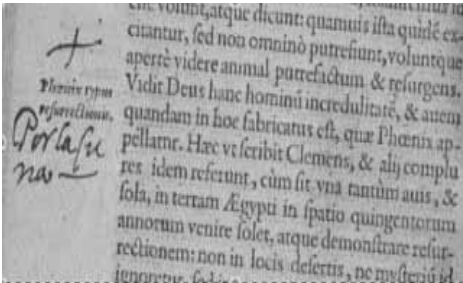 volunt, atque dicunt: quamuis ista quidē ex-
citantur, sed non omninò putrefiunt, voluntque
apertè videre animal putrefactum & resurgens.
Vidit Deus hanc hominū incredulitatē, & auem
quandam in hoc fabricatus est, quæ Phœnix ap-
pellatur. Hæc vt scribit Clemens, & alij complu
res idem referunt, cùm sit vna tantùm auis, &
sola, in terram Ægypti in spatio quingentorum
annorum venire solet, atque demonstrare resur-
rectionem: non in locis desertis, ne mysteriū id
ignoretur, sed
Phœnix typus
resurrectionis.
Por la su
na